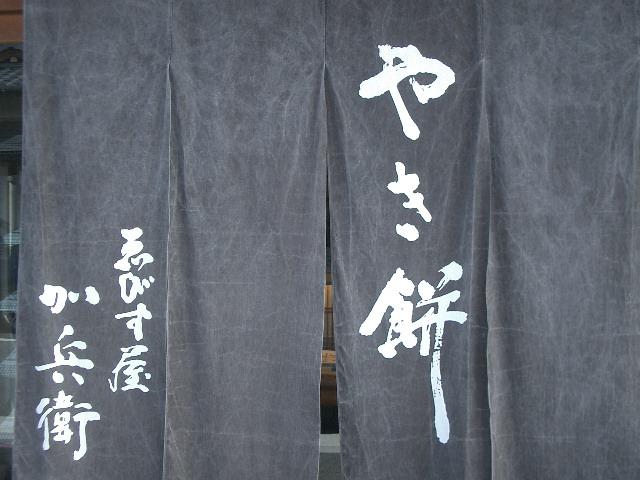 やき餅
ゑびす屋
加兵衛